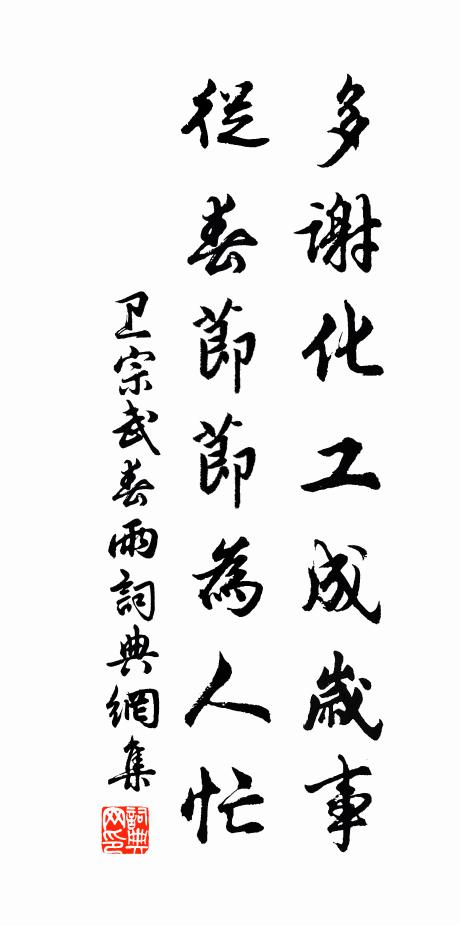 多謝化工成歲事
從春節節為人忙
卫宗武春雨詞典網集
詞典网印